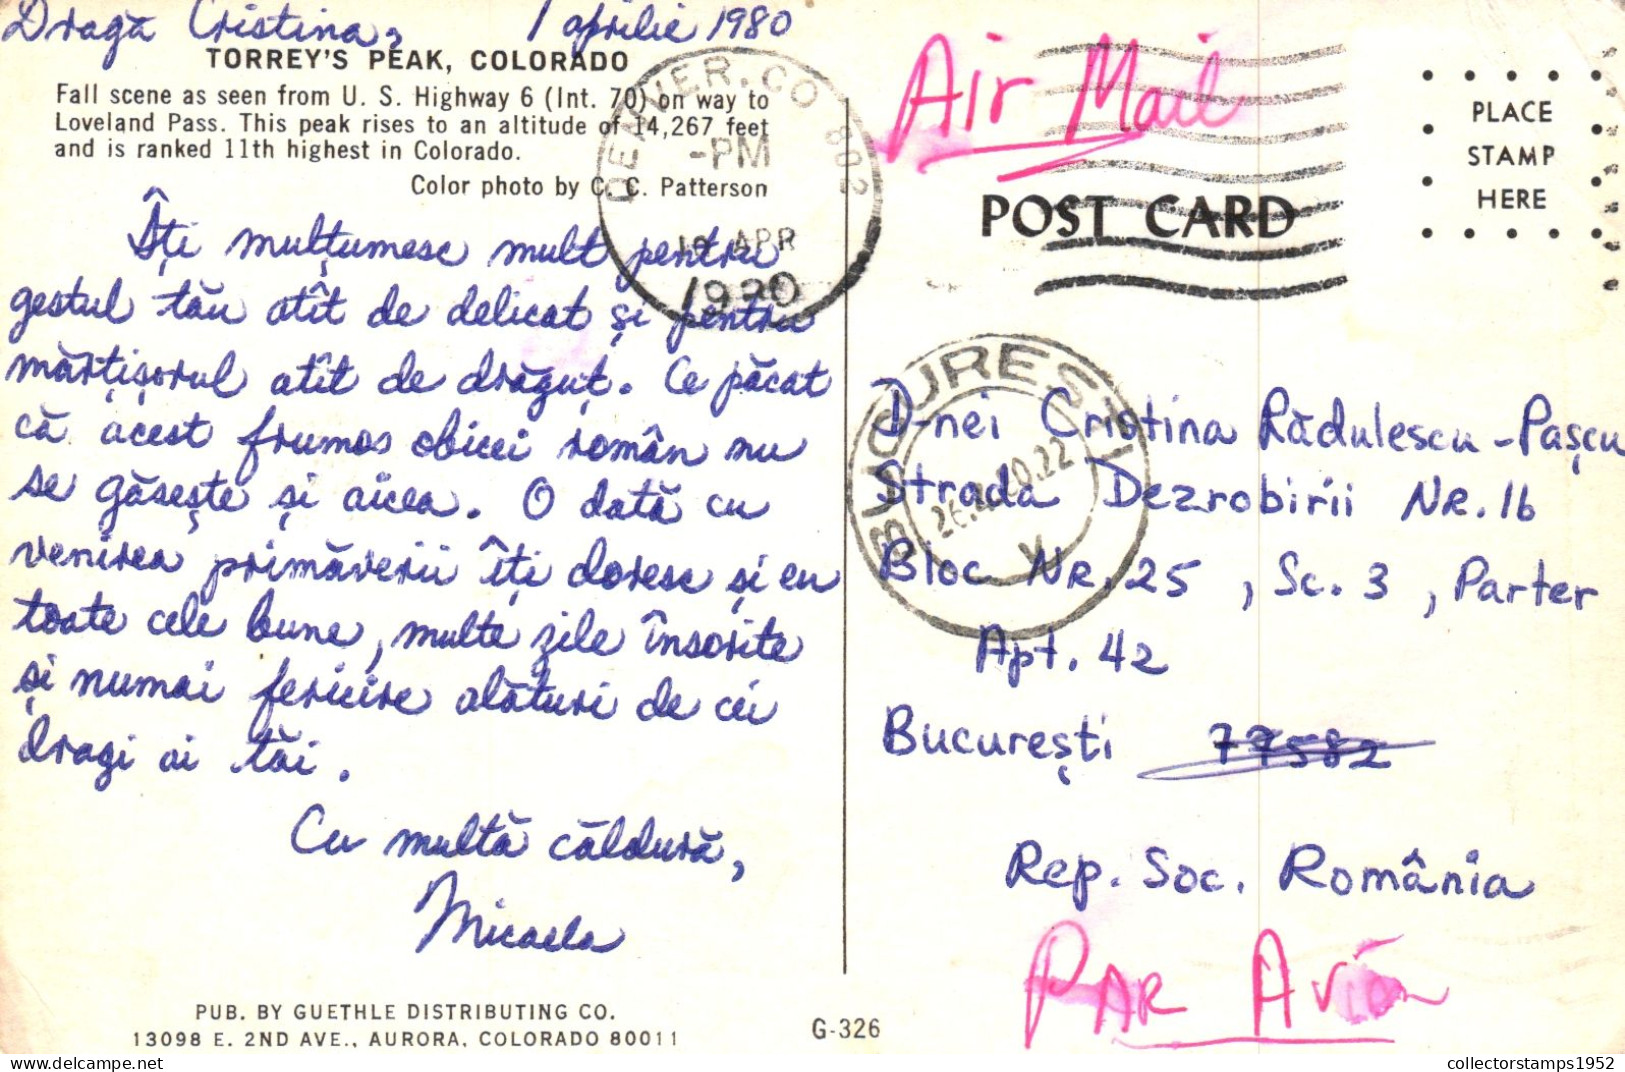 Dragă Cristina, 1 aprilie 1980
TORREY'S PEAK, COLORADO
Fall scene as seen from U. S. Highway 6 (Int. 70) on way to
Loveland Pass. This peak rises to an altitude of 14,267 feet
and is ranked 11th highest in Colorado.
Color photo by C. C. Patterson
Îți mulțumesc mult pentru
gestul tău atît de delicat și pentru
mărțișorul atît de drăguț. Ce păcat
că acest frumos obicei român nu
se găsește și aicea. O dată cu
venirea primăverii îți doresc și eu
toate cele bune, multe zile însorite
și numai fericire alături de cei
dragi ai tăi.
Cu multă căldură,
Micaela
PUB. BY GUETHLE DISTRIBUTING CO.
13098 E. 2ND AVE., AURORA, COLORADO 80011
G-326
DENVER, CO 802
-PM
APR
1980
Air Mail
PLACE
STAMP
HERE
POST CARD
BUCUREȘTI
D-nei Cristina Rădulescu-Pașcu
Strada Dezrobirii Nr. 16
Bloc Nr. 25, Sc. 3, Parter
Apt. 42
București 77582
Rep. Soc. România
PAR Avion
collectorstamps1952